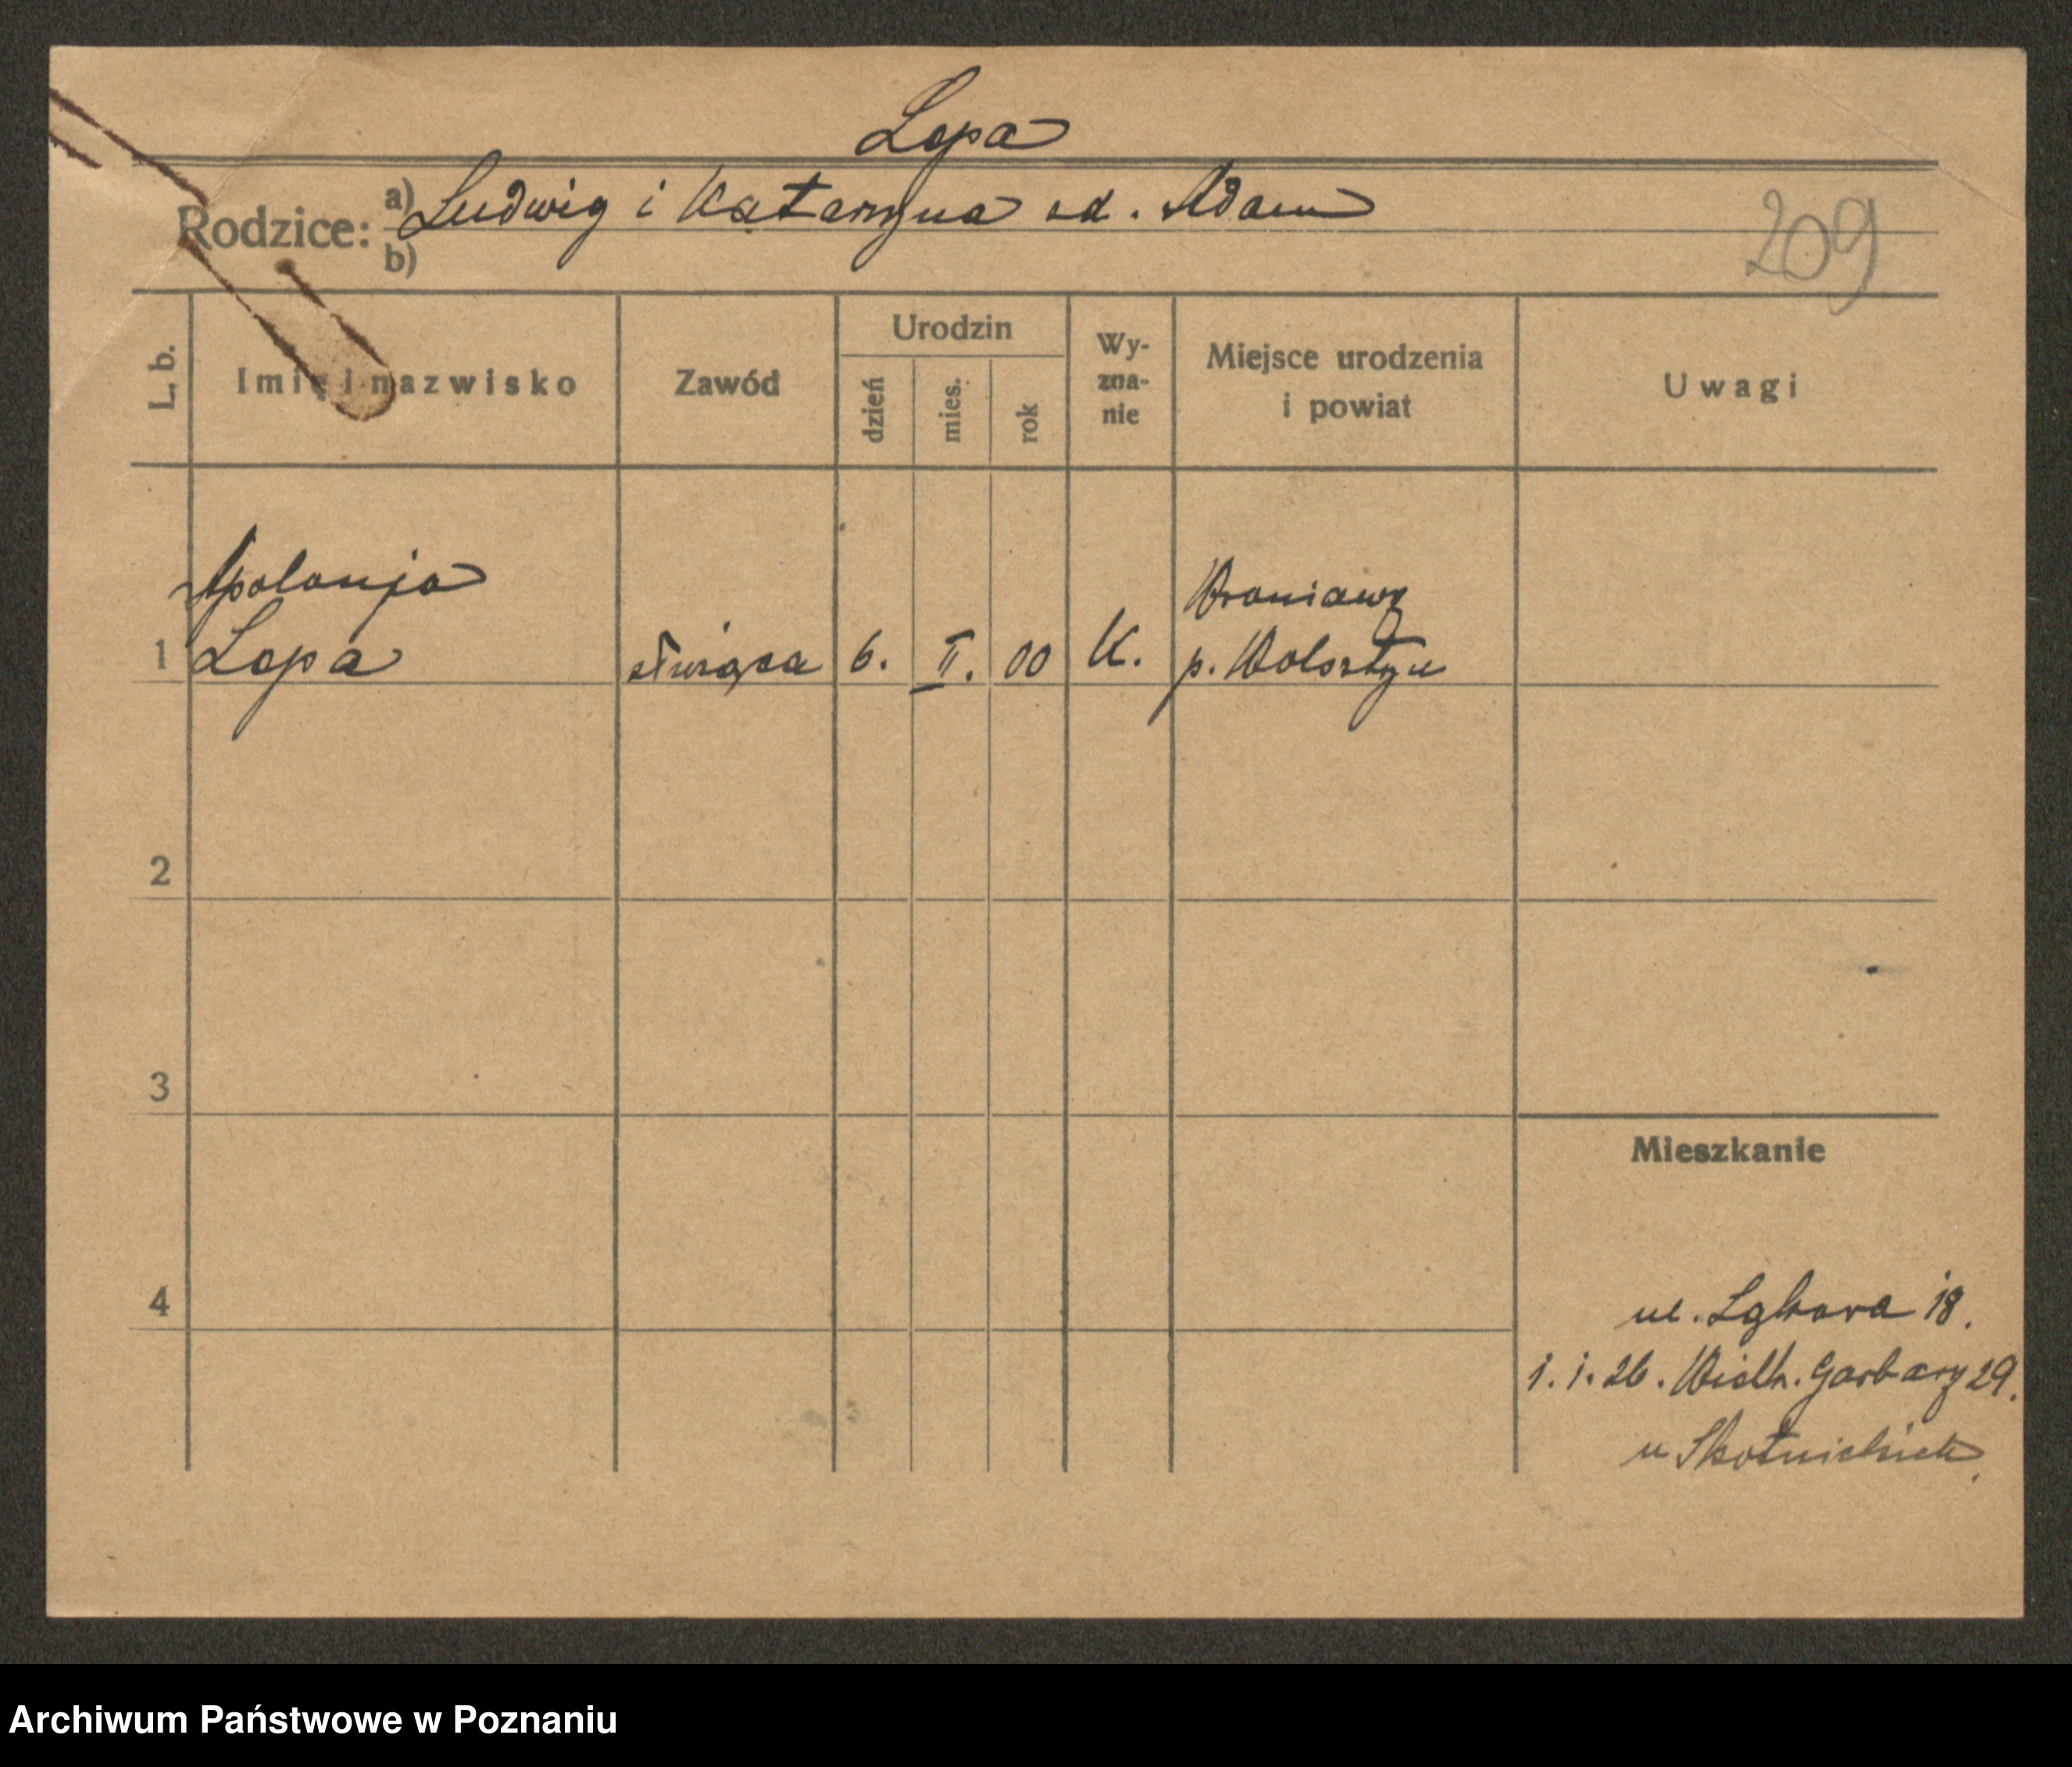 Lopa
Rodzice: a) Ludwig i Katarzyna od. Adam
b)
209
L. b.
Imię i nazwisko
Zawód
Urodzin
dzień
mies.
rok
Wy-
zna-
nie
Miejsce urodzenia
i powiat
Uwagi
Apolonja
Wroniawy
1 Lopa służąca 6. II. 00 K. p. Wolsztyn
2
3
Mieszkanie
4
ul. Łąkowa 18.
1.1.26. Wielk. Garbary 29.
u Skotnickich.
Archiwum Państwowe w Poznaniu